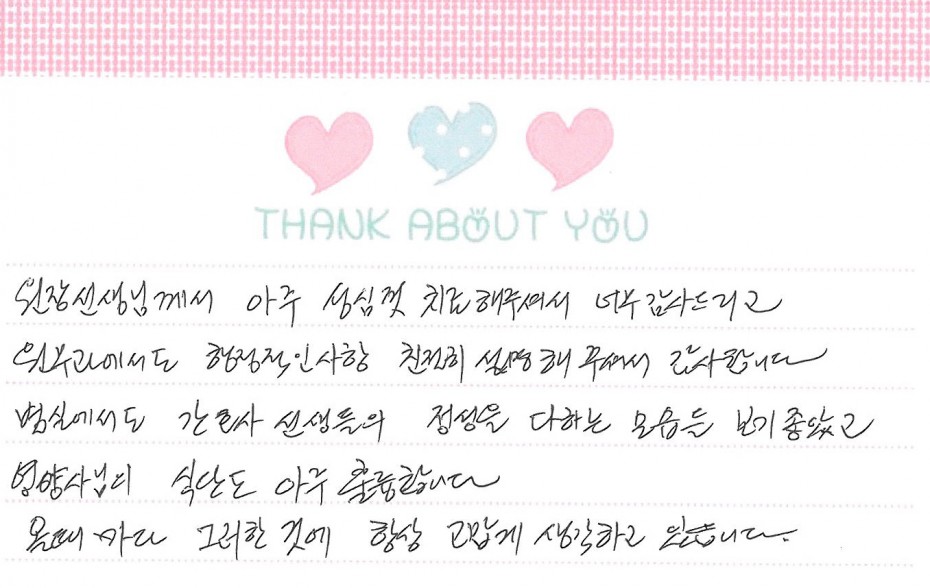 THANK ABOUT YOU
원장선생님께서 아주 성심껏 치료해주셔서 너무 감사드리고
원무과에서도 행정적인사항 친절히 설명해 주셔서 감사합니다
병실에서도 간호사 선생들의 정성을 다하는 모습들 보기좋았고
영양사님의 식단도 아주 훌륭합니다
올때 마다 그러한 것에 항상 고맙게 생각하고 있습니다.